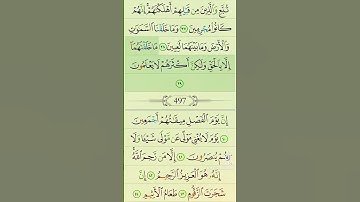 تُبَّعٍ وَالَّذِينَ مِن قَبْلِهِمْ أَهْلَكْنَاهُمْ إِنَّهُمْ
كَانُوا مُجْرِمِينَ ٣٧ وَمَا خَلَقْنَا السَّمَوَتِ
وَالْأَرْضَ وَمَا بَيْنَهُمَا لَعِبِينَ ٣٨ مَا خَلَقْنَهُمَا
إِلَّا بِالْحَقِّ وَلَكِنَّ أَكْثَرَهُمْ لَا يَعْلَمُونَ
٣٩
497
إِنَّ يَوْمَ الْفَصْلِ مِيقَتُهُمْ أَجْمَعِينَ
٤٠ يَوْمَ لَا يُغْنِي مَوْلًى عَن مَّوْلًى شَيْئًا وَلَا
هُمْ يُنصَرُونَ ٤١ إِلَّا مَن رَّحِمَ اللَّهُ
إِنَّهُ هُوَ الْعَزِيزُ الرَّحِيمُ ٤٢ إِنَّ
شَجَرَتَ الزَّقُّومِ ٤٣ طَعَامُ الْأَثِيمِ ٤٤